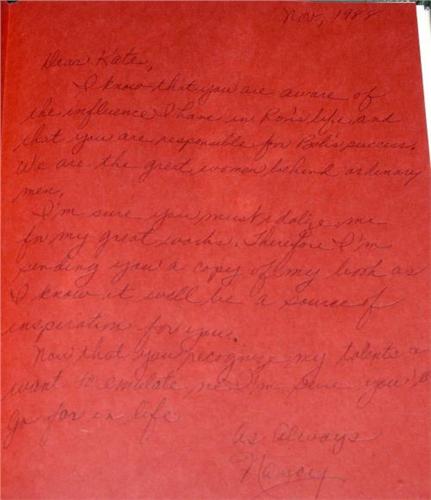 Nov, 1988
Dear Kate,
I know that you are aware of
the influence I have in Ron's life and
that you are responsible for Bob's success.
We are the great women behind ordinary
men.
I'm sure you must idolize me
for my great works. Therefore I'm
sending you a copy of my book as
I know it will be a source of
inspiration for you.
Now that you recognize my talents &
want to emulate me I'm sure you'll
go far in life
As Always
Nancy